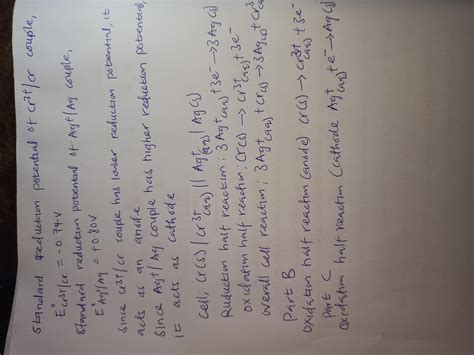 Standard reduction potential of Cr3+/Cr couple,
E°Cr3+/Cr = -0.74V
Standard reduction potential of Ag+/Ag couple,
E°Ag/Ag = +0.80V
Since Cr3+/Cr couple has lower reduction potential, it
acts as an anode
Since Ag+/Ag couple has higher reduction potential,
it acts as cathode
Cell; Cr(s) | Cr3+(aq) || Ag+(aq) | Ag(s)
Reduction half reaction; 3Ag+(aq) + 3e- → 3Ag(s)
Oxidation half reaction; Cr(s) → Cr3+(aq) + 3e-
Overall cell reaction; 3Ag+(aq) + Cr(s) → 3Ag(s) + Cr3+(aq)
Part B
Oxidation half reaction (anode) Cr(s) → Cr3+(aq) + 3e-
Part C
Oxidation half reaction (cathode Ag+(aq) + e- → Ag(s)